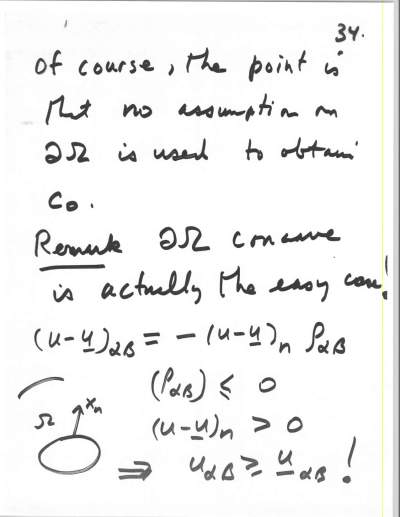 34.
Of course, the point is
that no assumption on
∂Ω is used to obtain
C₀.
Remark ∂Ω concave
is actually the easy case!
(u-u̲)_{αβ} = - (u-u̲)_n ρ_{αβ}
(ρ_{αβ}) ≤ 0
Ω x_n (u-u̲)_n > 0
⇒ u_{αβ} ≥ u̲_{αβ} !